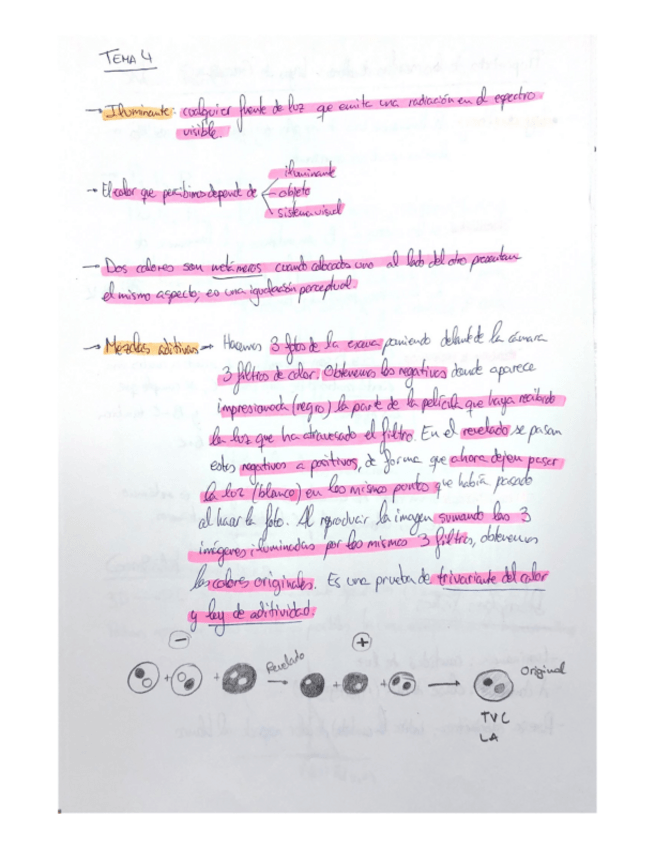 TEMA 4
→ Iluminante: cualquier fuente de luz que emita una radiación en el espectro
visible.
iluminante
→ El color que percibimos depende de objeto
sistema visual
→ Dos colores son metámeros cuando colocado uno al lado del otro presentan
el mismo aspecto, es una igualación perceptual.
→ Mezclas aditivas → Hacemos 3 fotos de la escena poniendo delante de la cámara
3 filtros de color. Obtenemos los negativos donde aparece
impresionada (negro) la parte de la película que haya recibido
la luz que ha atravesado el filtro. En el revelado se pasan
estos negativos a positivos, de forma que ahora dejen pasar
la luz (blanco) en los mismos puntos que había pasado
al hacer la foto. Al reproducir la imagen sumando las 3
imágenes iluminadas por los mismos 3 filtros, obtenemos
los colores originales. Es una prueba de trivariante del color
y ley de aditividad.
− +
+ + Revelado → + + → Original
TVC
LA